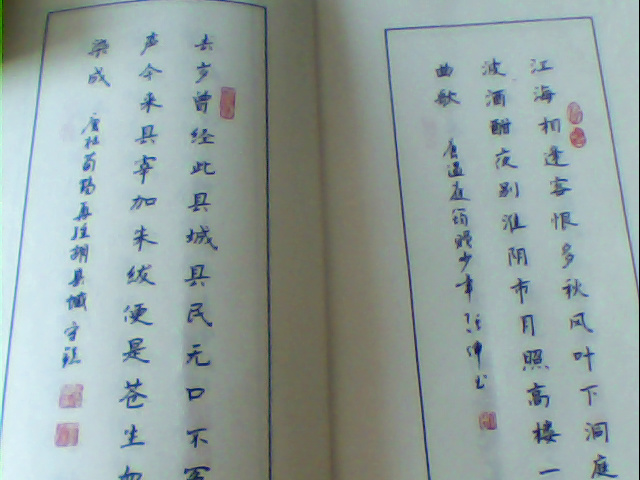 江海相逢客恨多秋风叶下洞庭
波酒酣夜别淮阴市月照高楼一
曲歌
唐温庭筠赠少年
去岁曾经此县城县民无口不冤
声今来县宰加朱绂便是苍生血
染成
唐杜荀鹤再经胡县城